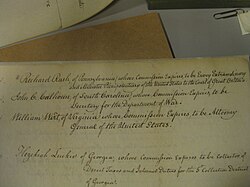 Richard Rush, of Pennsylvania, whose Commission Expires to be Envoy Extraordinary
and Minister Plenipotentiary of the United States to the Court of Great Britain
John C. Calhoun of South Carolina, whose Commission Expires to be
Secretary for the Department of War.
William Wirt, of Virginia, whose Commission Expires to be Attorney
General of the United States.
of Georgia, whose Commission Expires to be Collector of
Direct Taxes and Internal Duties for the Collection District
of Georgia.